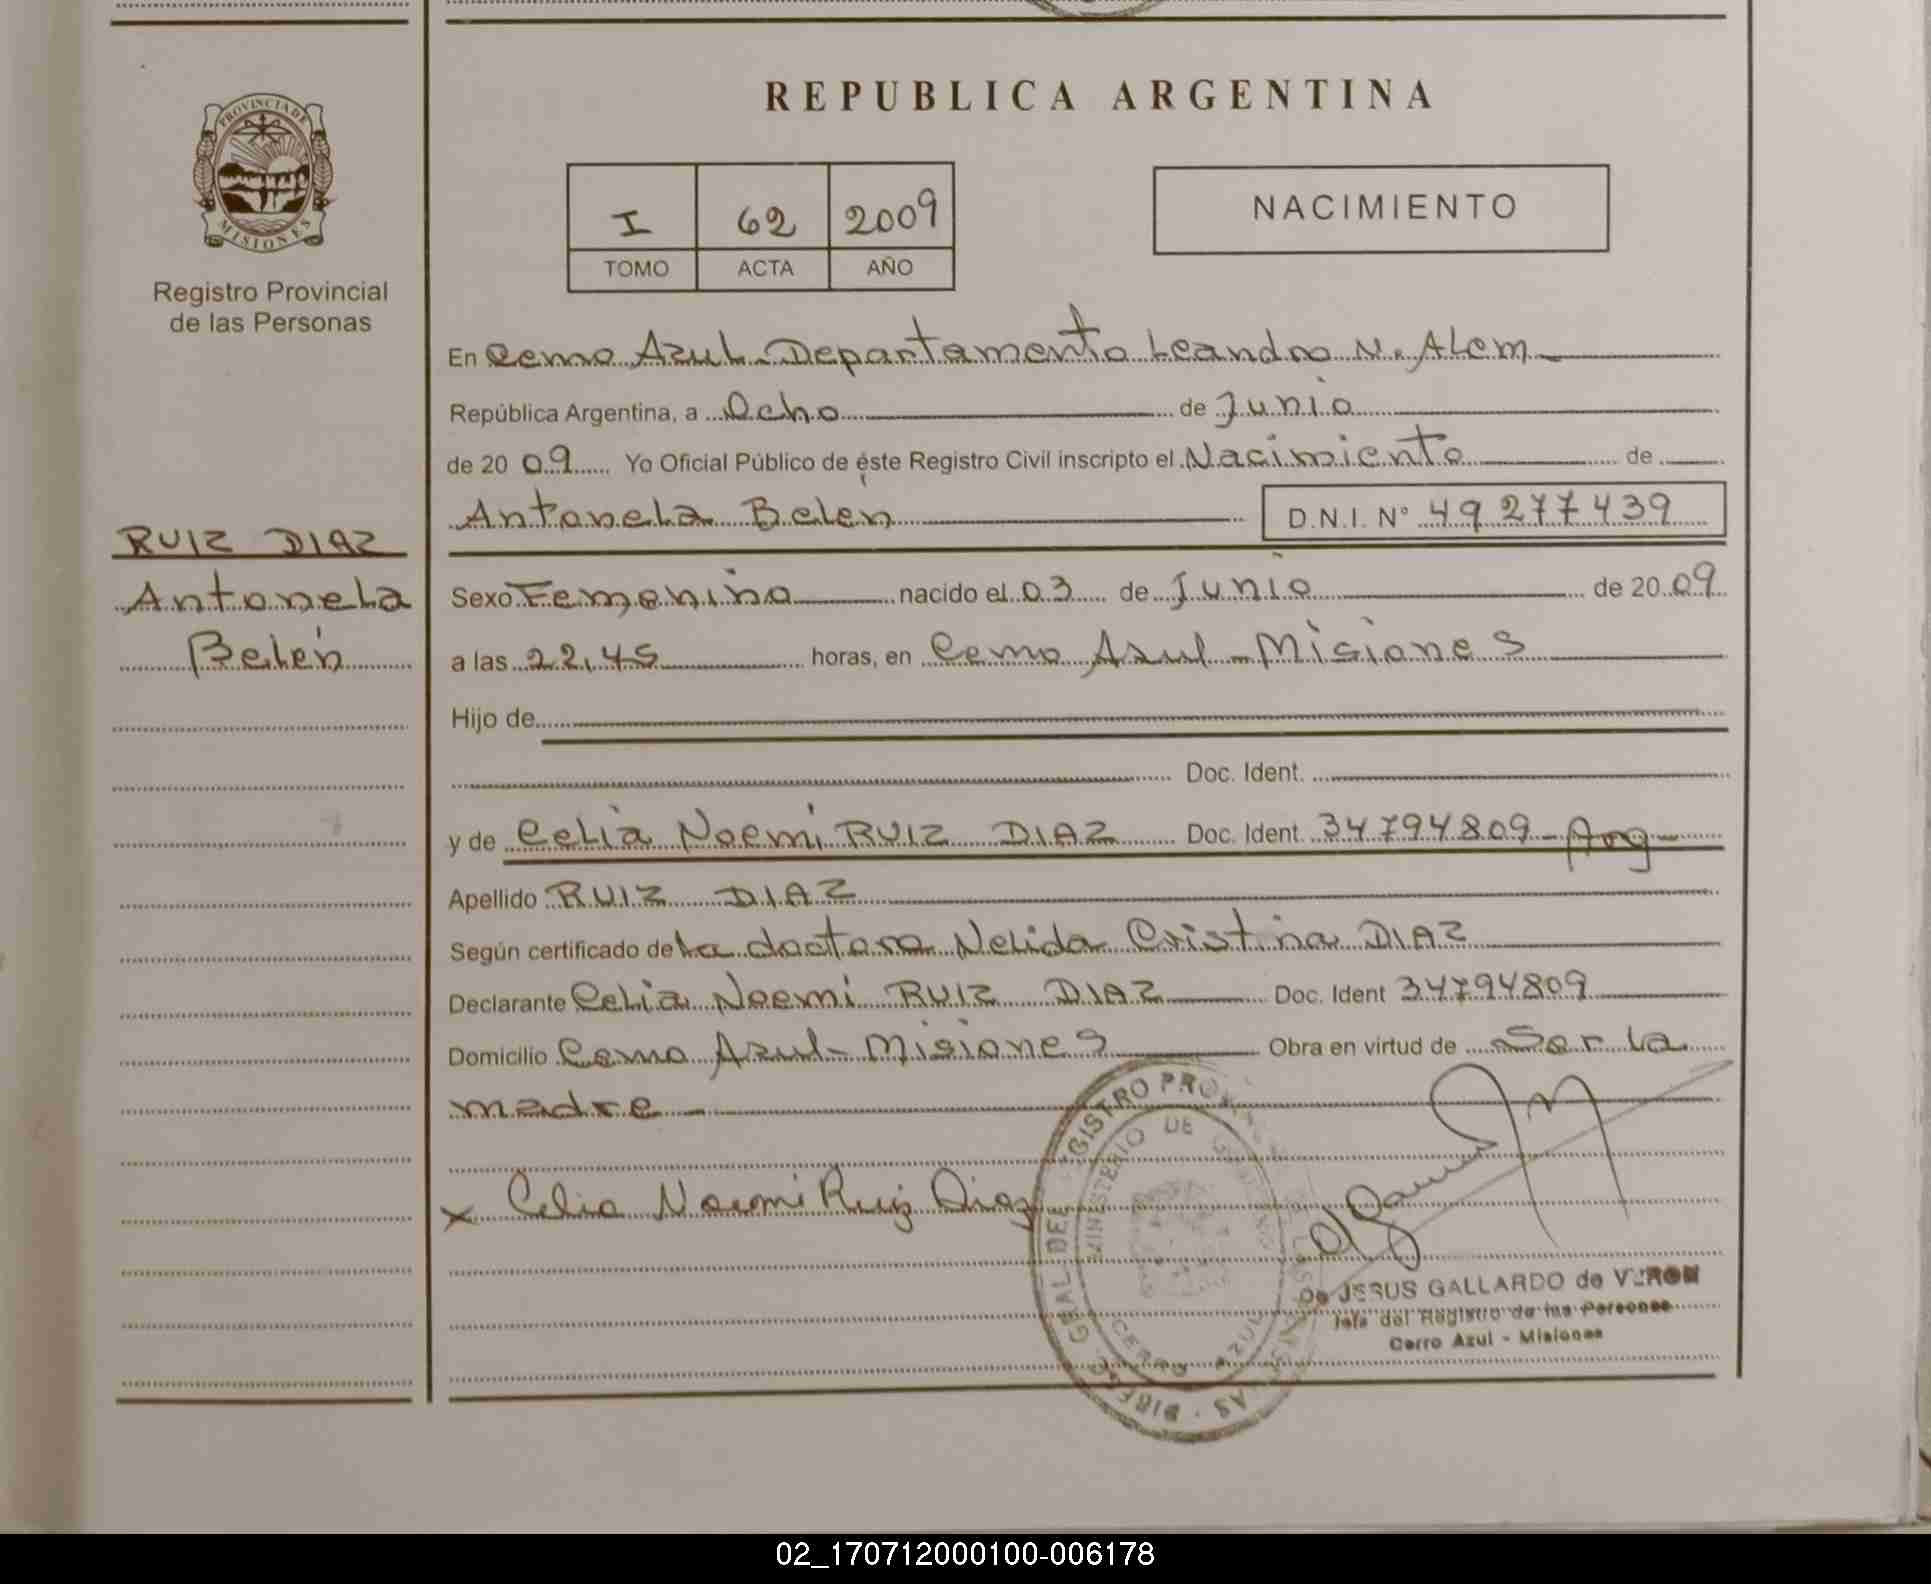 REPUBLICA ARGENTINA
PROVINCIA DE
MISIONES
Registro Provincial
de las Personas
I 62 2009
TOMO ACTA AÑO
NACIMIENTO
En Cerro Azul - Departamento Leandro N. Alem -
República Argentina, a Ocho de Junio
de 20 09 Yo Oficial Público de éste Registro Civil inscripto el Nacimiento de
Antonela Belén D.N.I. N° 49 277 439
RUIZ DIAZ
Antonela
Belén
Sexo Femenino nacido el 03 de Junio de 20 09
a las 22,45 horas, en Cerro Azul - Misiones
Hijo de
Doc. Ident.
y de Celia Noemi RUIZ DIAZ Doc. Ident. 34794809 - Arg -
Apellido RUIZ DIAZ
Según certificado de La doctora Nelida Cristina DIAZ
Declarante Celia Noemi RUIZ DIAZ Doc. Ident 34794809
Domicilio Cerro Azul - Misiones Obra en virtud de Ser la
madre -
x Celia Noemi Ruiz Diaz
GRAL DEL REGISTRO PROV
MINISTERIO DE
CERRO AZUL
JESUS GALLARDO de VERON
Jefe del Registro de las Personas
Cerro Azul - Misiones
02_170712000100-006178